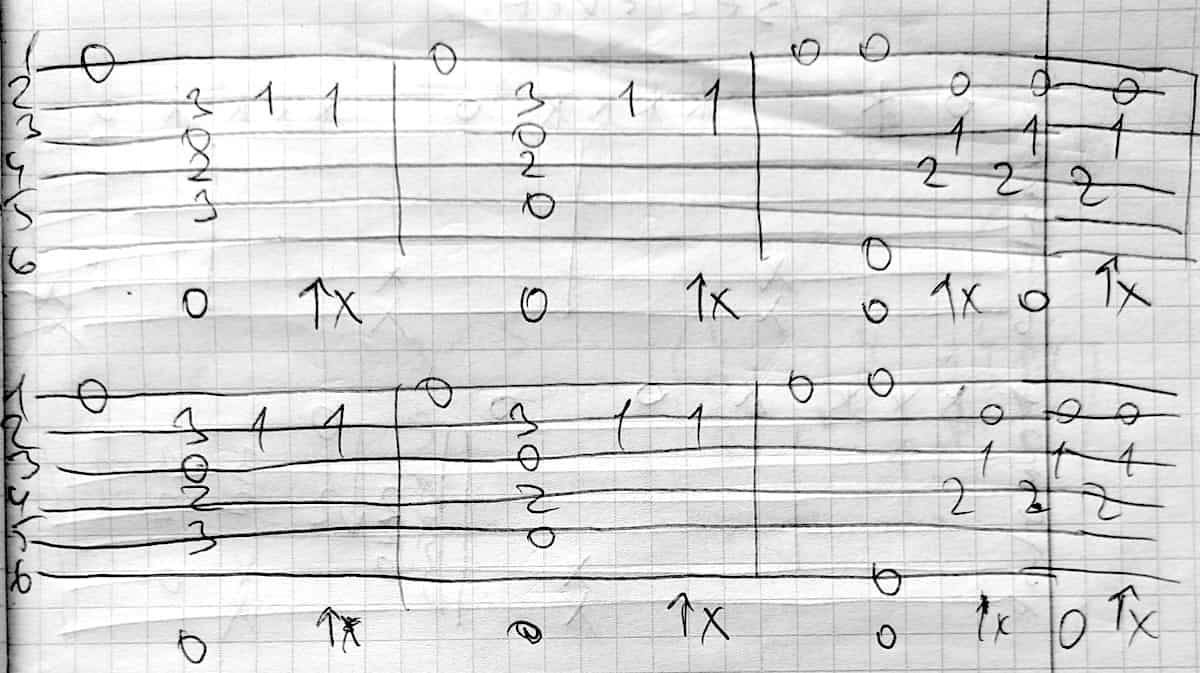 1 0 0 0 0
2 3 1 1 3 1 1 0 0 0
3 0 0 1 1 1
4 2 2 2 2 2
5 3 0
6 0
0 ↑x 0 ↑x 0 ↑x 0 ↑x
1 0 0 0 0
2 3 1 1 3 1 1 0 0 0
3 0 0 1 1 1
4 2 2 2 2 2
5 3 0
6 0
0 ↑x 0 ↑x 0 ↑x 0 ↑x